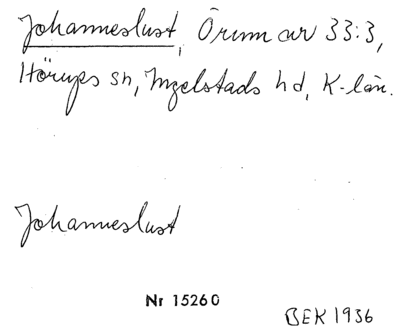 Johanneslust, Örum av 33:3,
Hörups sn, Ingelstads hd, K-län.
Johanneslust
Nr 15260
BEK 1936